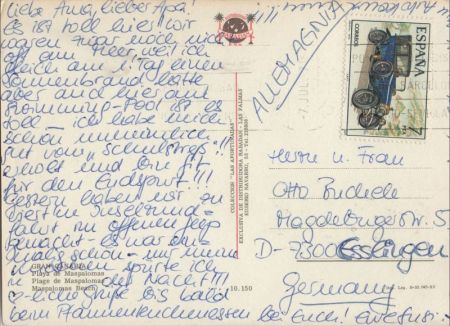 Liebe Ama, lieber Apa!
Es ist toll hier! Wir
waren zwar noch nicht
oft am Meer, weil ich
gleich am 1. Tag einen
Sonnenbrand hatte
aber auch hier am
Swimming-Pool ist es
toll - ich habe mich
schon unheimlich
gut vom "Schulstress"
erholt und bin fit
für den Endspurt!!!
Gestern haben wir zu
viert 'ne Inselrund-
fahrt im offenen Jeep
gemacht - es war
schön - nur meine
spürte ich
in der Nacht!!!
-liche Grüße bis bald
beim Pfannenkuchenessen bei Euch! Eure
GRAN CANARIA
Playa de Maspalomas
Plage de Maspalomas
Maspalomas Beach
10.150
COLECCION "LAS AFORTUNADAS"
EXCLUSIVA DE DISTRIBUIDORA BAZAGAN - LAS PALMAS
ALLEMAGNIA
CORREOS
ESPAÑA
7 PTA
Herrn u. Frau
Otto Buchele
Magdeburger Str. 5
D-7300 Esslingen
Germany